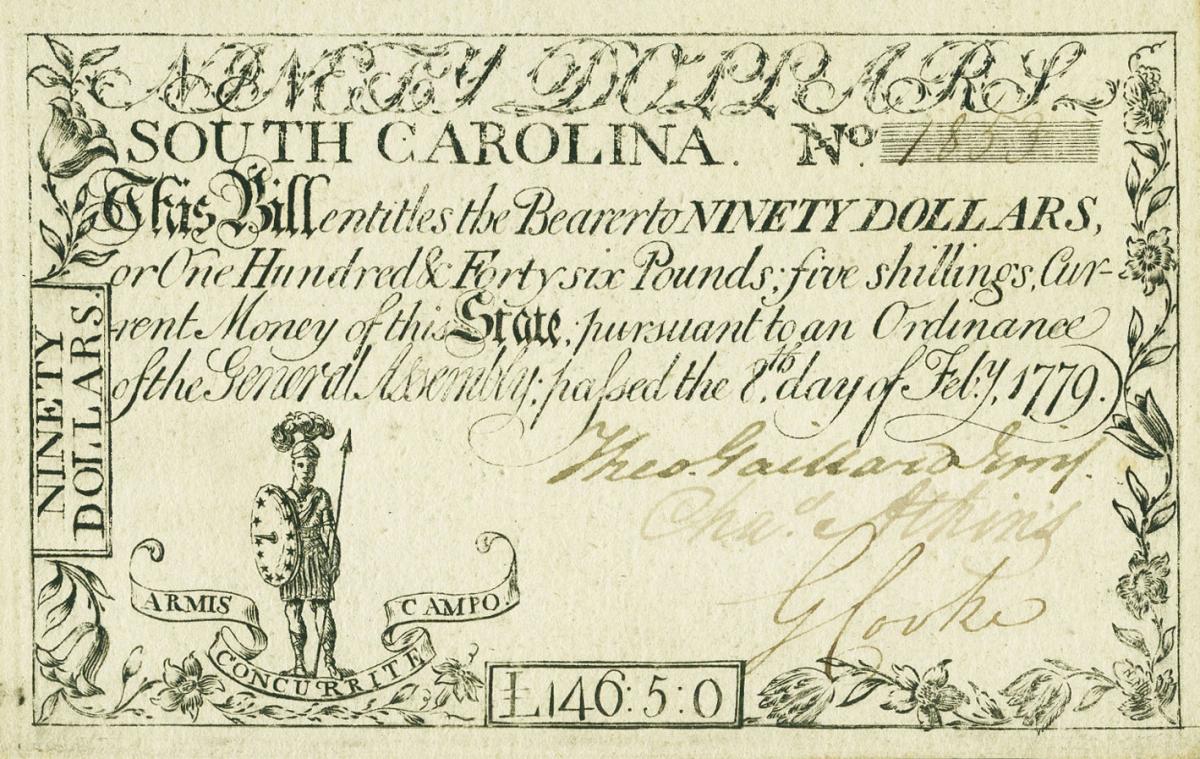 NINETY DOLLARS.
SOUTH CAROLINA. No. 1853
This Bill entitles the Bearer to NINETY DOLLARS,
or One Hundred & Forty six Pounds; five shillings, Cur-
rent Money of this State; pursuant to an Ordinance
of the General Assembly; paſsed the 8th day of Feb:y, 1779.
NINETY
DOLLARS.
Theo. Gaillard Junr.
Chas. Atkins
G Cooke
ARMIS
CONCURRITE
CAMPO
£146:5:0